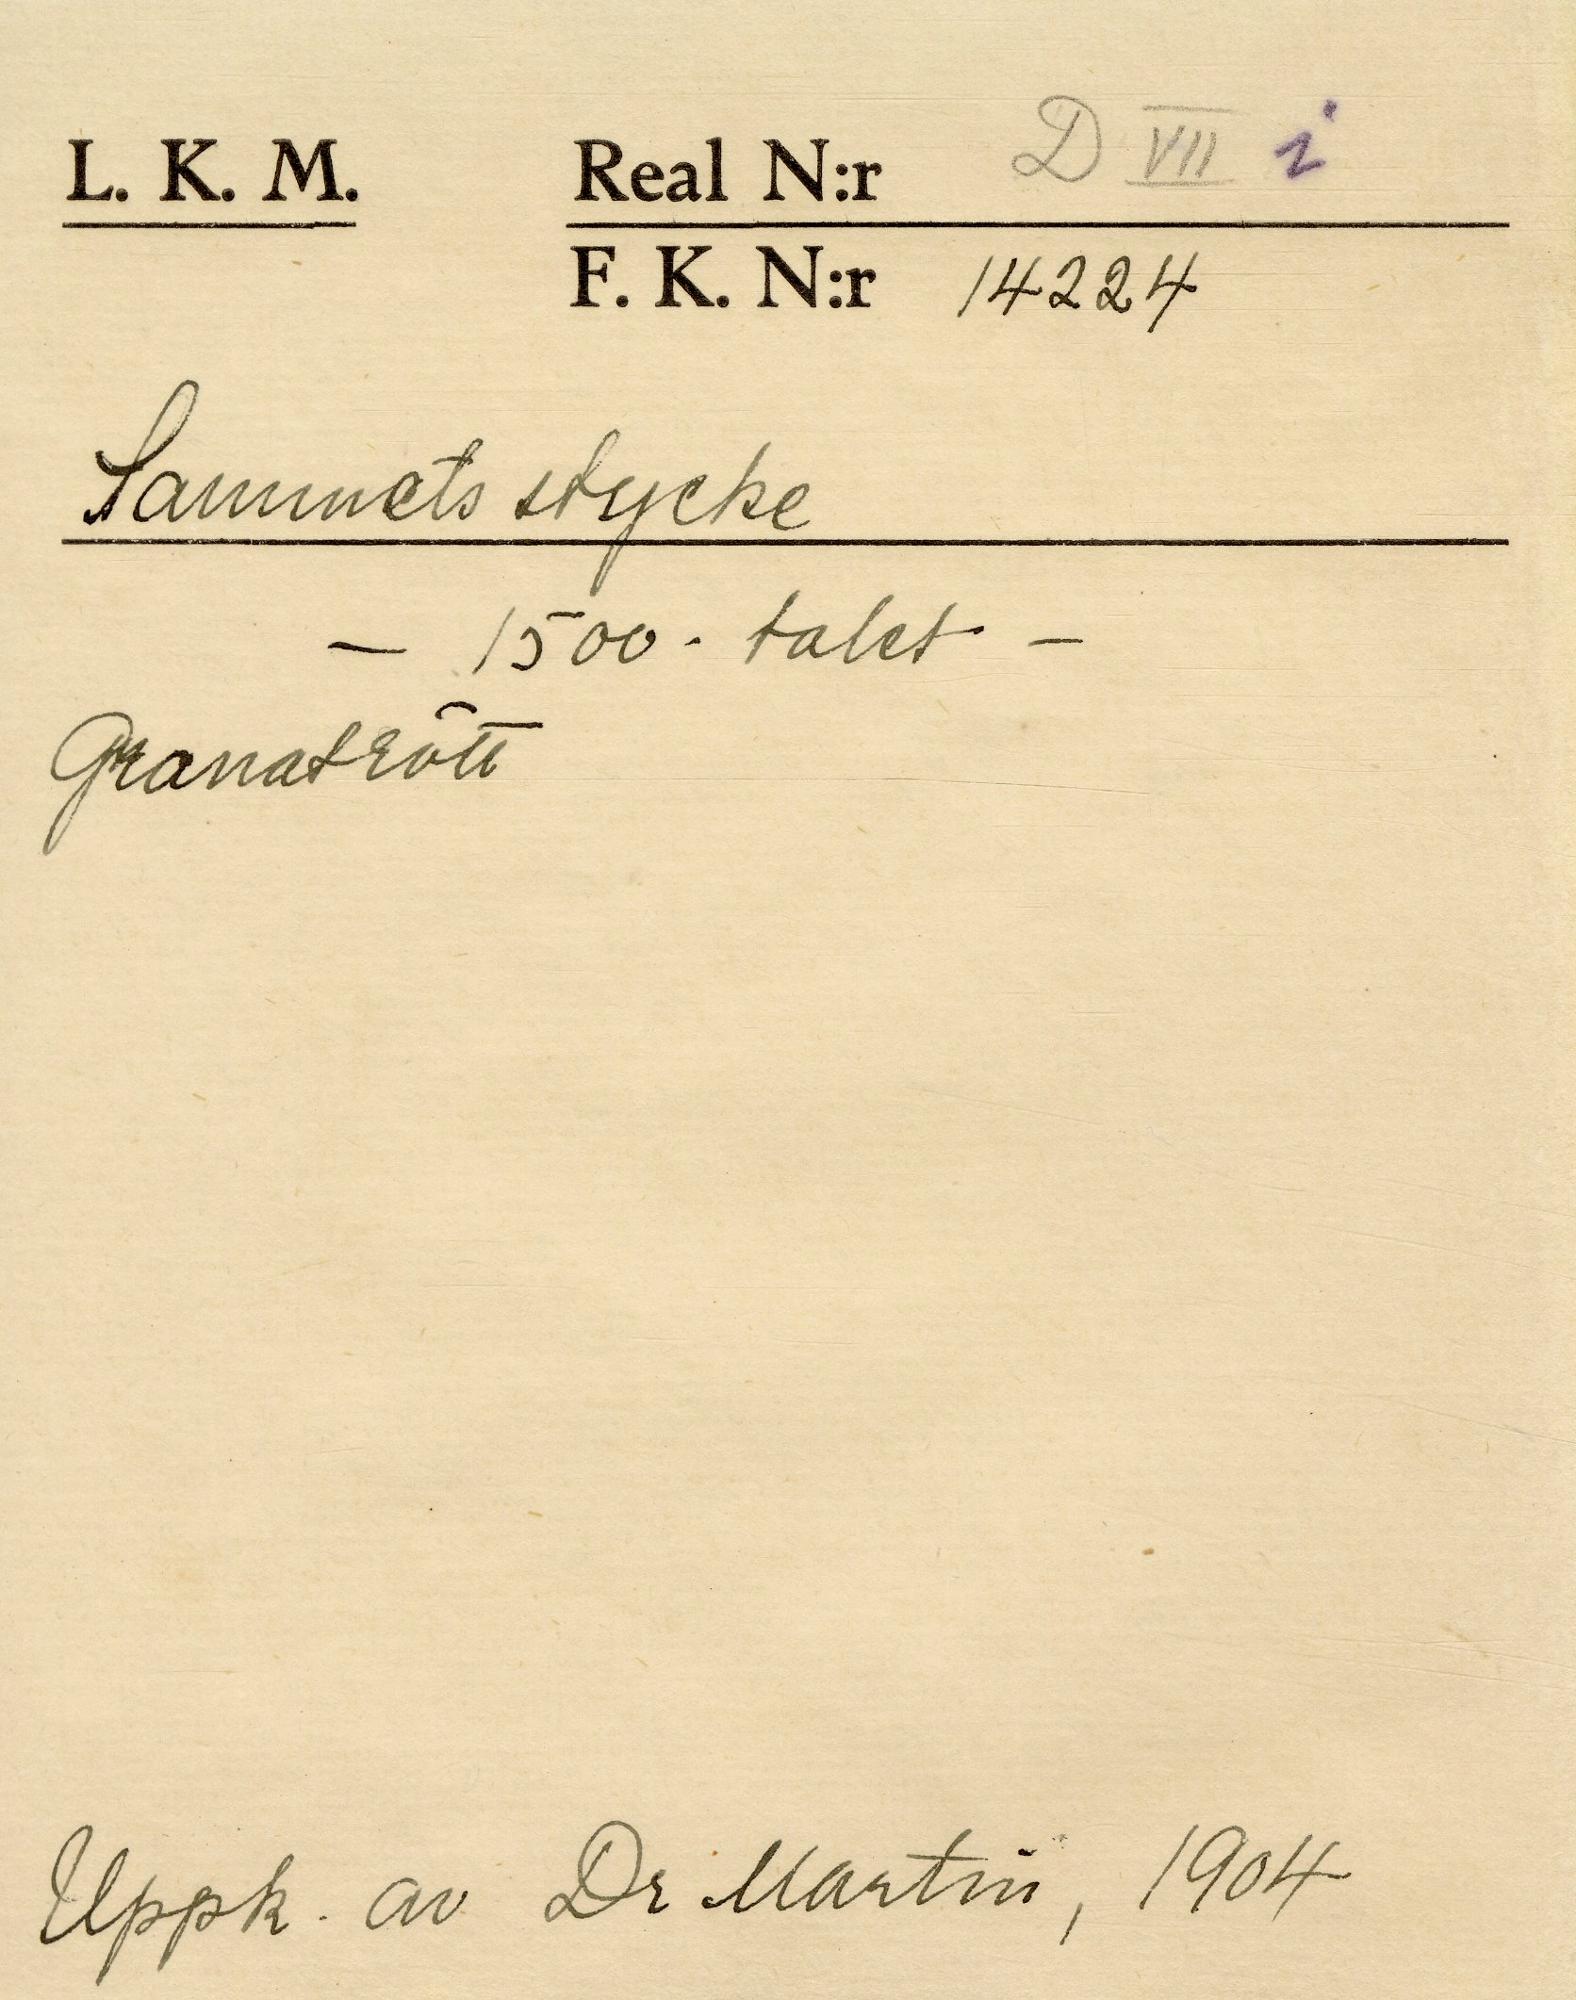 L. K. M. Real N:r D VII i
F. K. N:r 14224
Sammets stycke
— 1500-talet —
Granatrött
Uppk. av Dr Martin, 1904